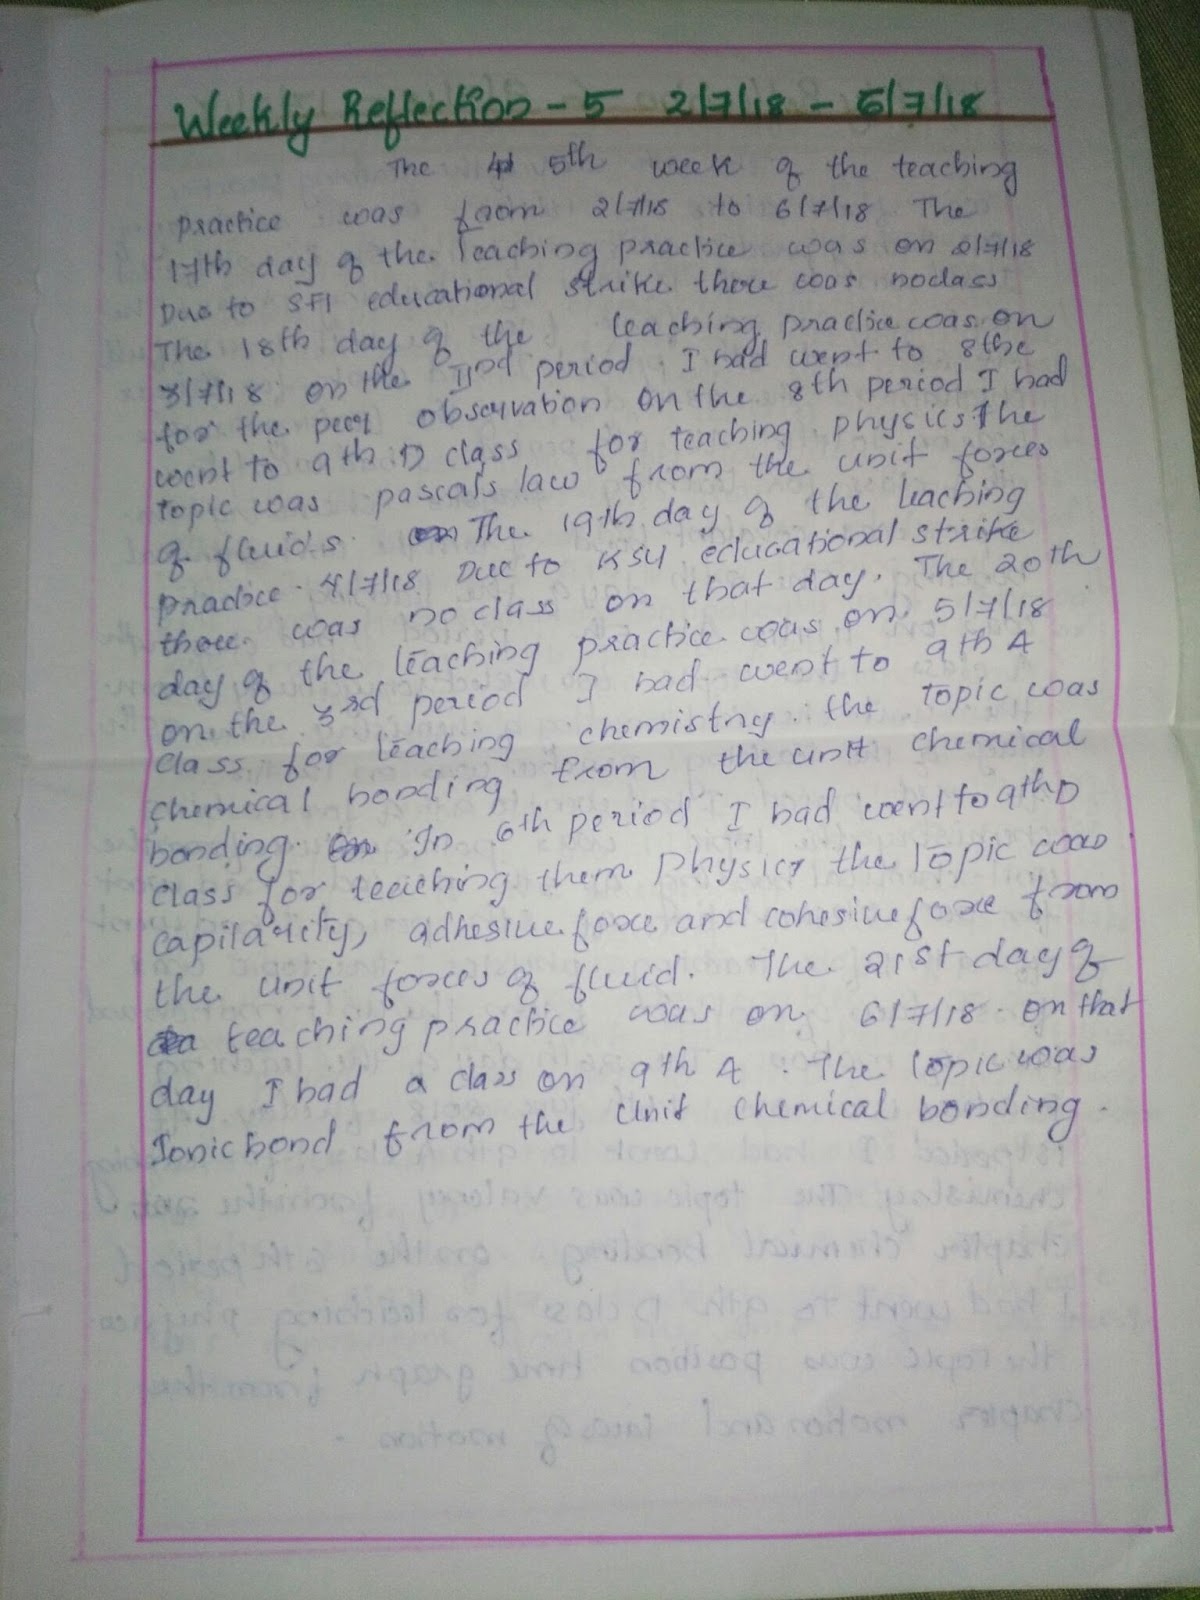 Weekly Reflection - 5 2/7/18 - 6/7/18
The 5th week of the teaching
practice was from 2/7/18 to 6/7/18 The
17th day of the teaching practice was on 2/7/18
Due to SFI educational strike there was noclass
The 18th day of the teaching practice was on
3/7/18 on the IInd period. I had went to 8the
for the peer observation on the 8th period I had
went to 9th D class for teaching physics The
topic was pascals law from the unit forces
of fluids. The 19th day of the teaching
practice. 4/7/18 Due to KSU educational strike
there was no class on that day. The 20th
day of the teaching practice was on 5/7/18
on the 3rd period I had went to 9th A
class for teaching chemistry. the topic was
chemical bonding from the unit chemical
bonding. In 6th period I had went to 9th D
class for teaching them physics the topic was
capilarity, adhesive force and cohesive force from
the unit forces of fluid. The 21st day of
teaching practice was on 6/7/18. on that
day I had a class on 9th A. The topic was
Ionic bond from the unit chemical bonding.